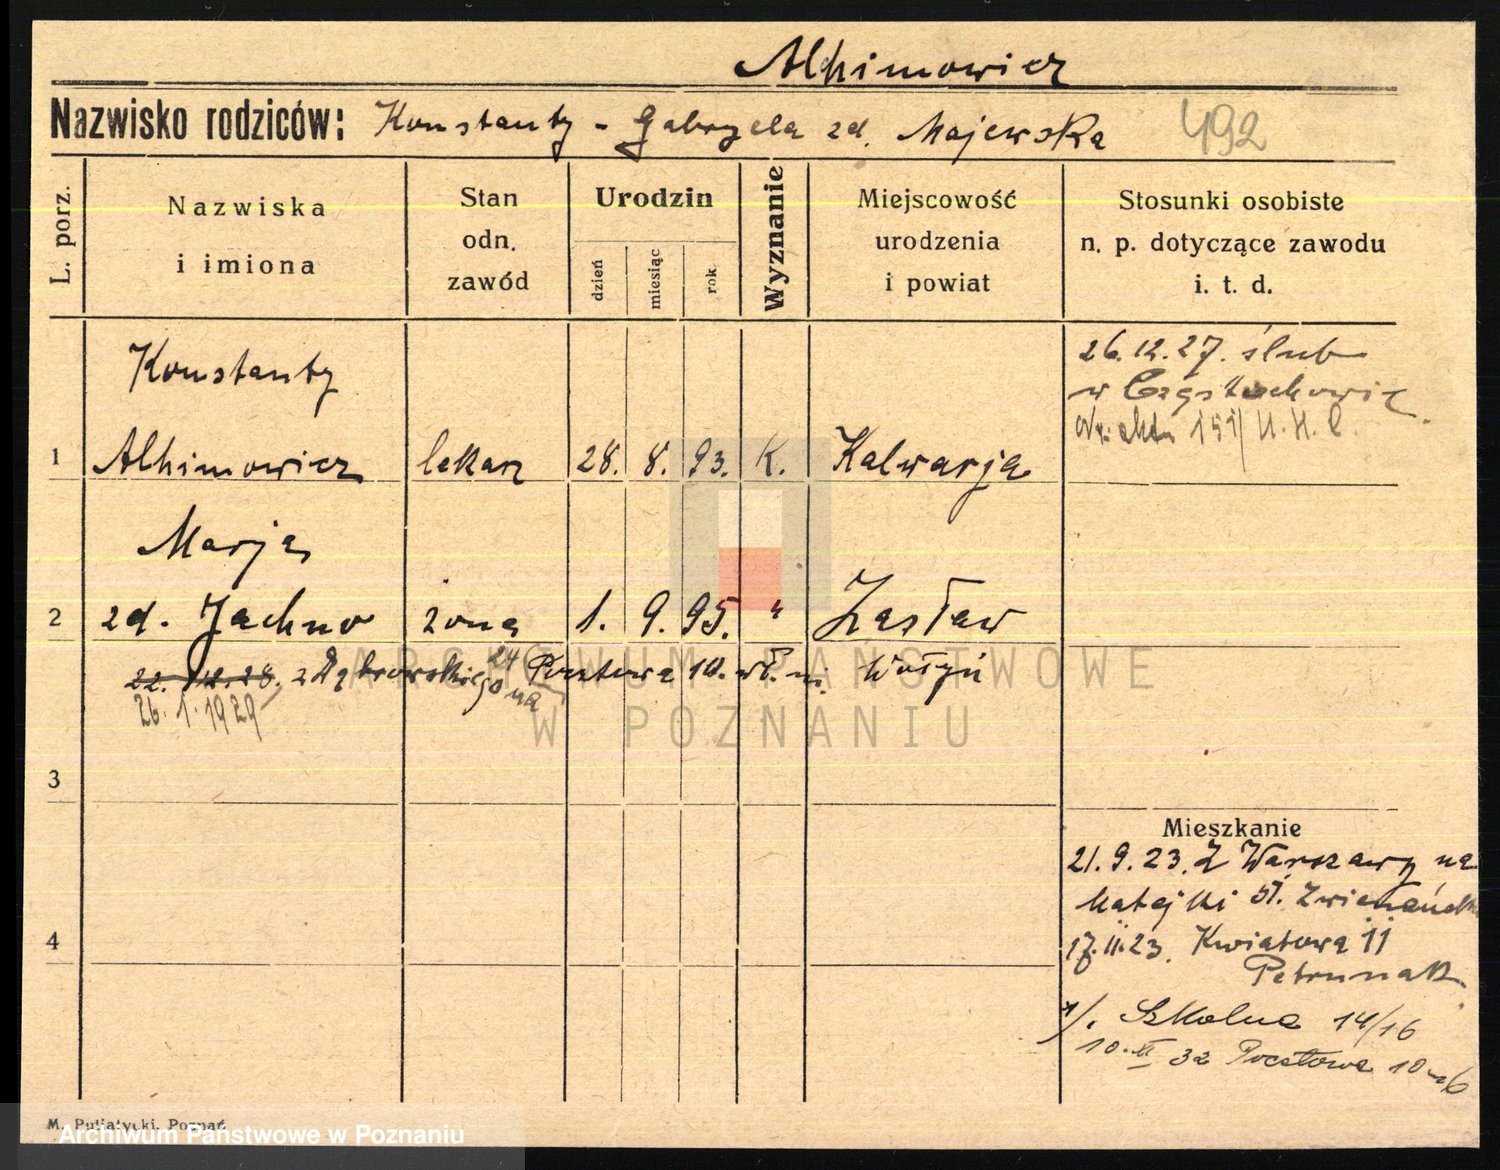 Alhimowicz
Nazwisko rodziców: Konstanty - Gabryela zd. Majewska 492
L. porz.
Nazwiska
i imiona
Stan
odn.
zawód
Urodzin
dzień
miesiąc
rok
Wyznanie
Miejscowość
urodzenia
i powiat
Stosunki osobiste
n. p. dotyczące zawodu
i. t. d.
Konstanty
1 Alhimowicz lekarz 28. 8. 93. K. Kalwarja
26.12.27. ślub
w Częstochowie
Marja
2 zd. Jachno żona 1. 9. 95. " Zasław
22. 12. 28. z Dąbrowskiego 24 na Pocztowa 10. wł. m. Wołyń
26.1.1929
3
4
Mieszkanie
21.9.23. Z Warszawy na
Matejki 51.
17.11.23. Kwiatowa 11
Petrunak
*/. Szkolna 14/16
10.XI 32 Pocztowa 10 m 6
M. Putiatycki, Poznań
ARCHIWUM PAŃSTWOWE
W POZNANIU
Archiwum Państwowe w Poznaniu